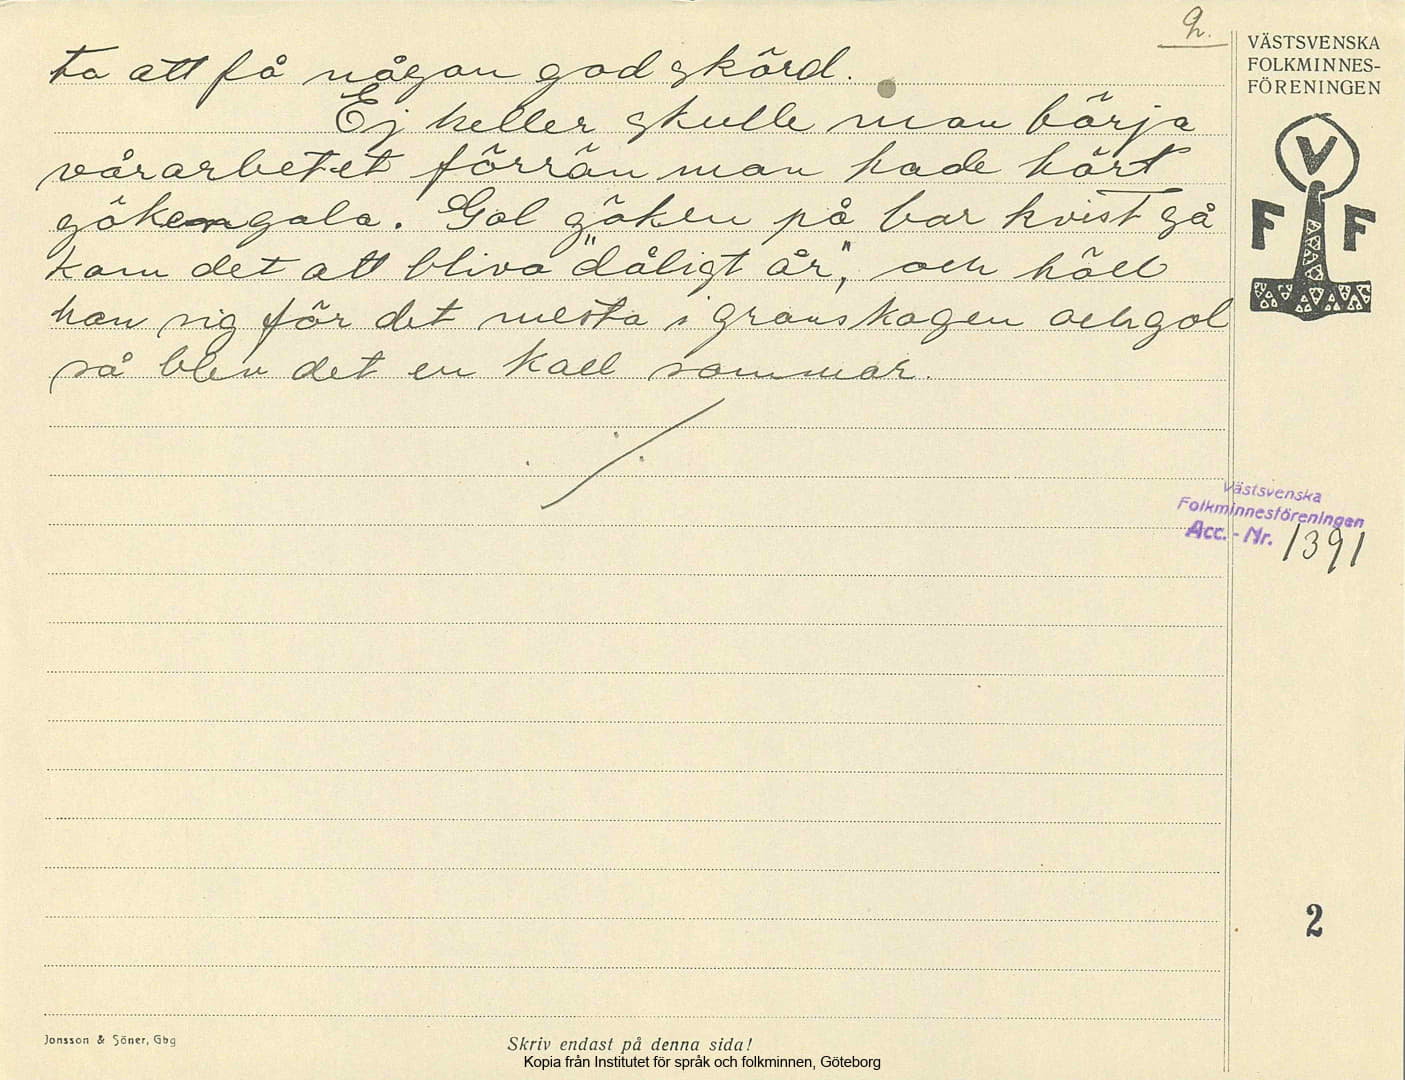 2.
ta att få någon god skörd.
Ej heller skulle man börja
vårarbetet förrän man hade hört
göken gala. Gol göken på bar kvist så
kom det att bliva "dåligt år", och höll
han sig för det mesta i granskogen och gol
så blev det en kall sommar.
VÄSTSVENSKA
FOLKMINNES-
FÖRENINGEN
V
F F
Västsvenska
Folkminnesföreningen
Acc. - Nr. 1391
2
Jonsson & Söner, Gbg
Skriv endast på denna sida!
Kopia från Institutet för språk och folkminnen, Göteborg